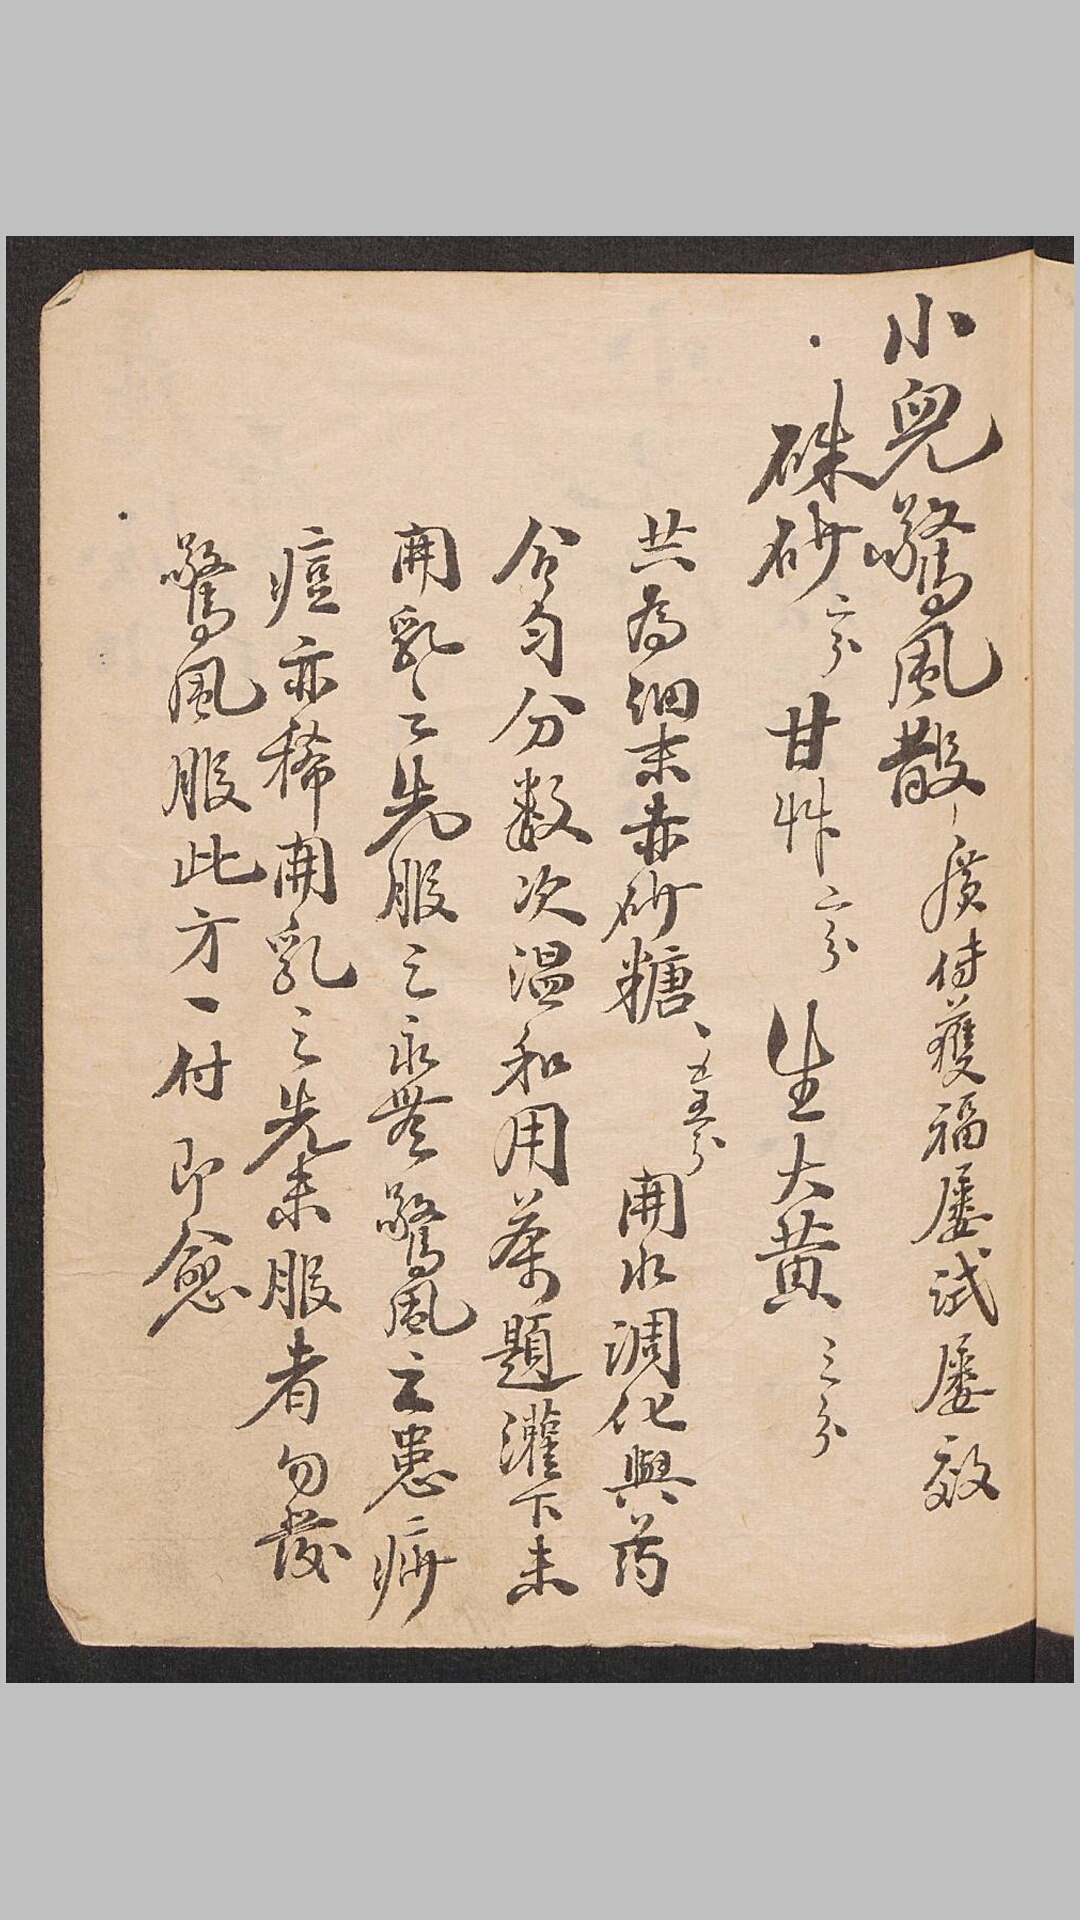 小兒驚風散 廣付獲福屢試屢效
硃砂 二分 甘艸 二分 生大黃 三分
共為細末赤砂糖、五分 開水調化與药
合匀分数次温和用茶題灌下未
開乳之先服之永無驚風之患痳
痘亦稀開乳之先未服者勿發
驚風服此方一付即愈